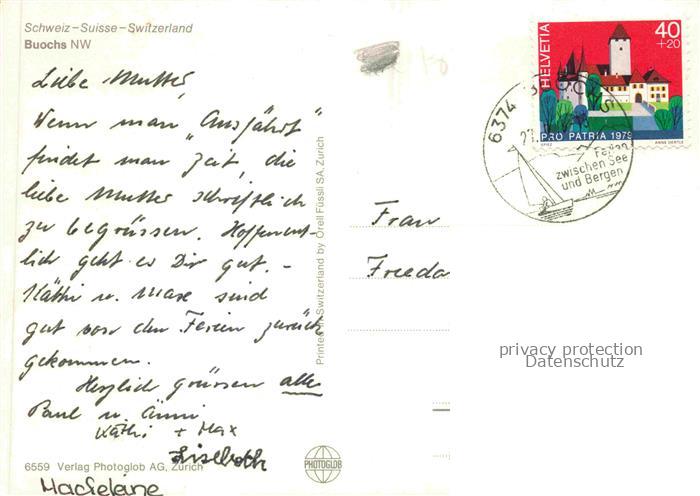 Schweiz–Suisse–Switzerland
Buochs NW
Liebe Mutter,
Wenn man "Ausfährt"
findet man Zeit, die
liebe Mutter schriftlich
zu begrüssen. Hoffent-
lich geht es Dir gut. -
Käthi u. Max sind
gut von den Ferien zurück
gekommen.
Herzlich grüssen alle
Paul u. Änni
Käthi + Max
Liselboth
Madeleine
6559 Verlag Photoglob AG, Zürich
PHOTOGLOB
Printed in Switzerland by Orell Füssli SA, Zürich
HELVETIA
40
+20
PRO PATRIA 1979
SPIEZ
ANNE OERTLE
6374 BUOCHS
Ferien
zwischen See
und Bergen
Frau
Freeda
privacy protection
Datenschutz